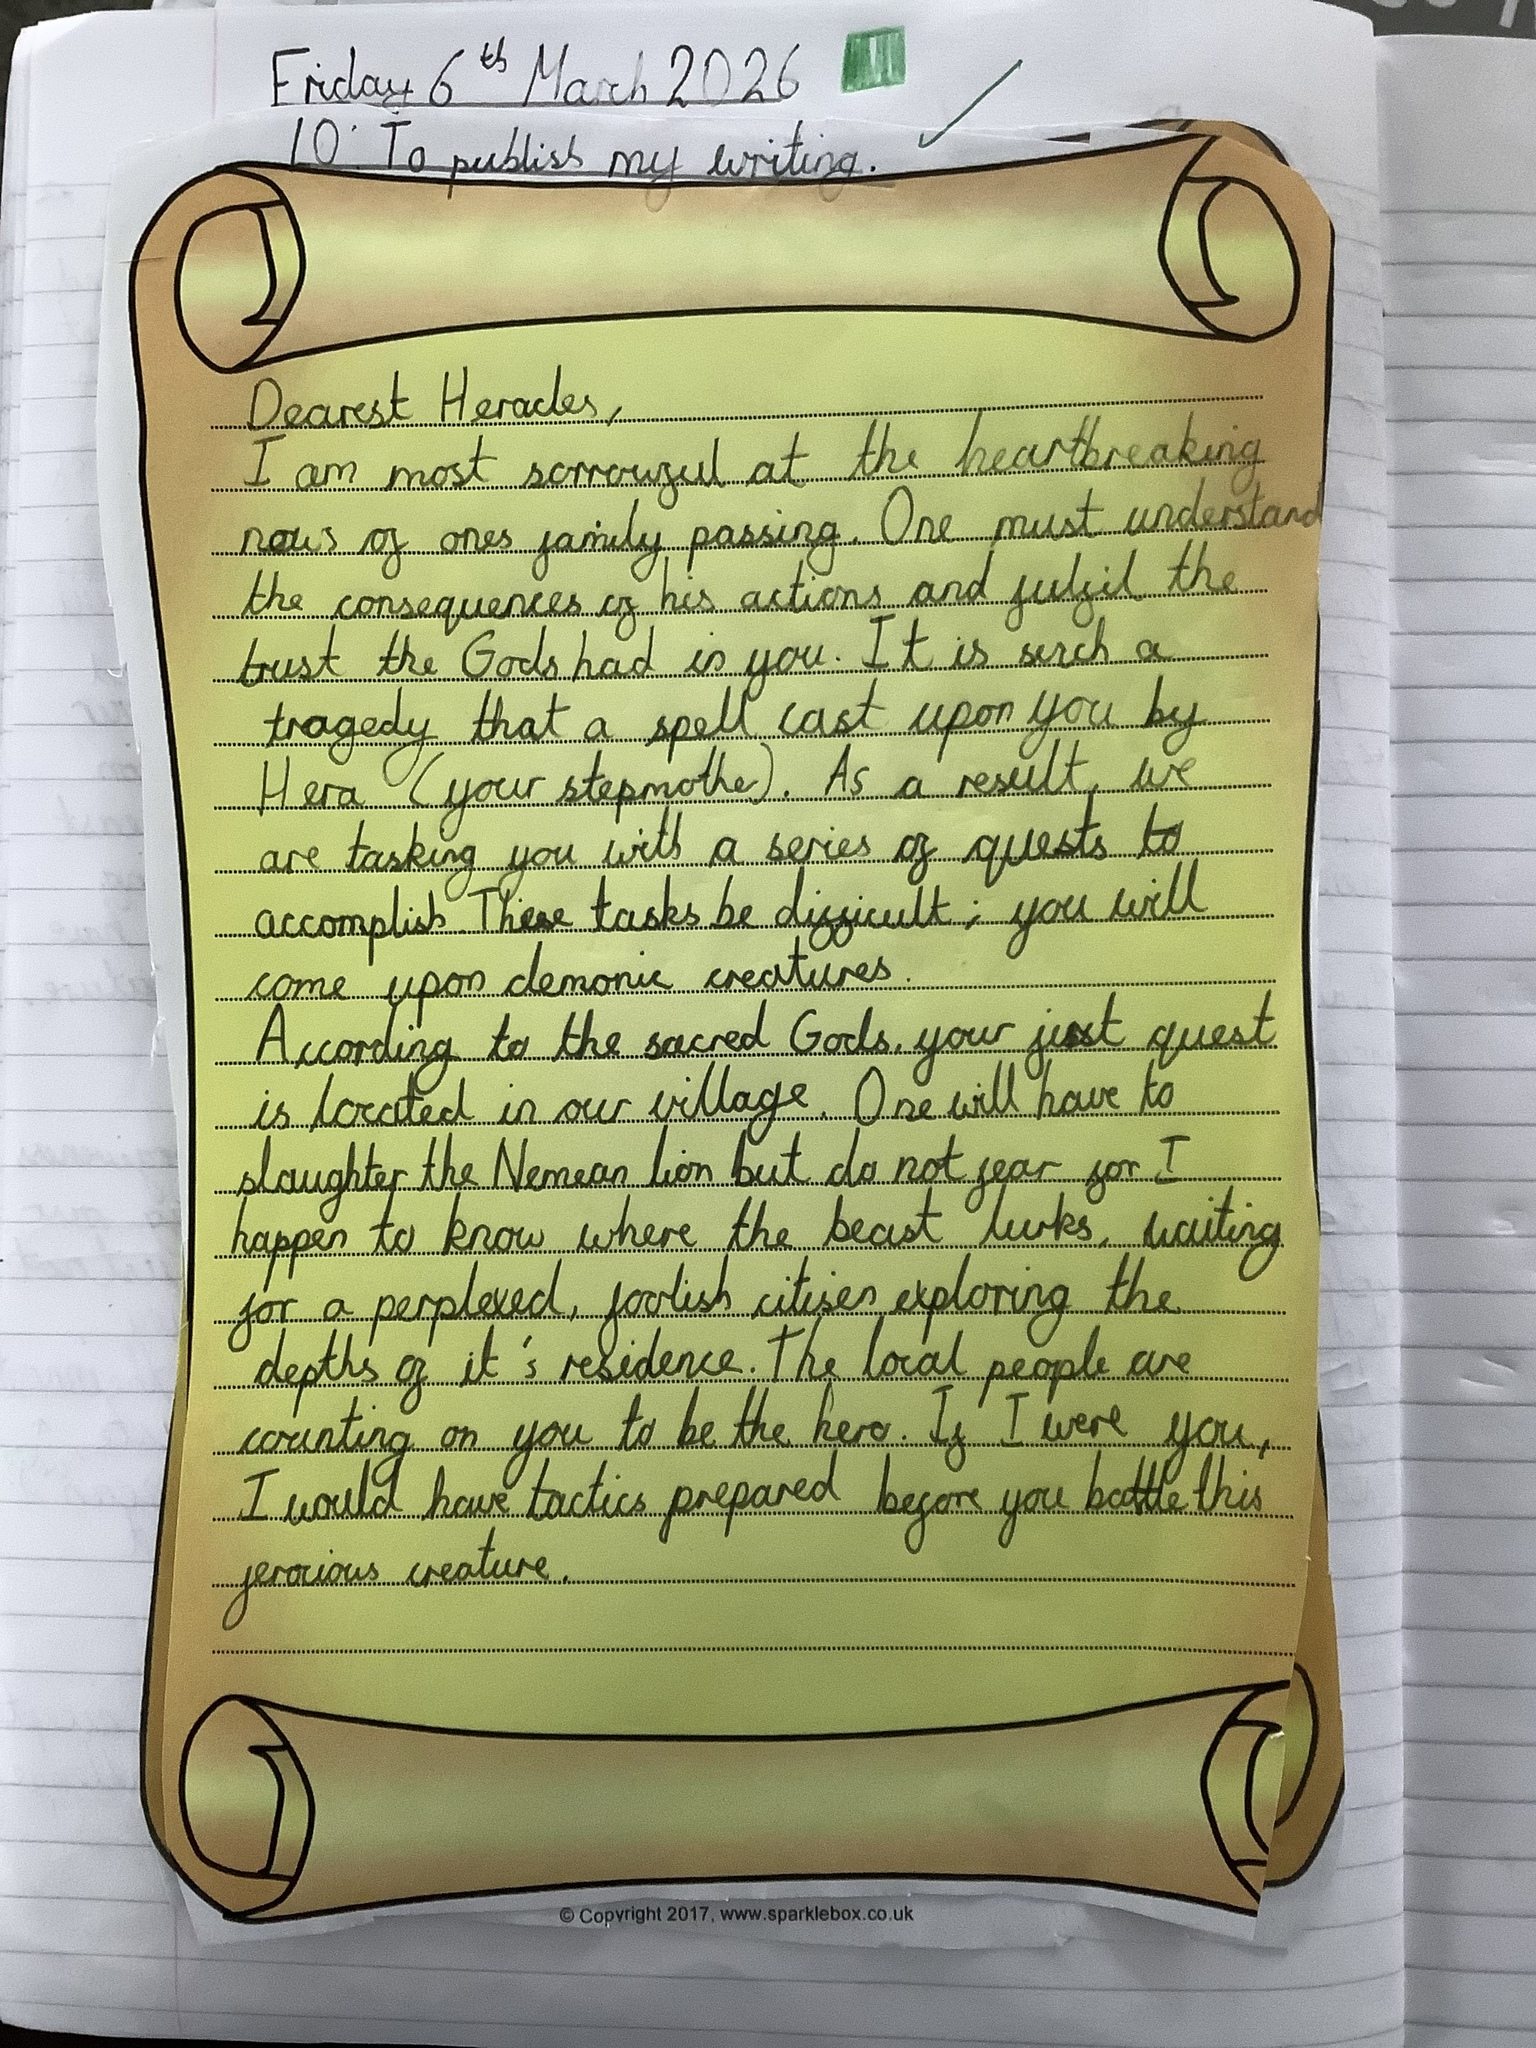 Friday 6th March 2026
LO: To publish my writing.
Dearest Heracles,
I am most sorrowful at the heartbreaking
news of ones family passing. One must understand
the consequences of his actions and fulfil the
trust the Gods had in you. It is such a
tragedy that a spell cast upon you by
Hera (your stepmothe). As a result, we
are tasking you with a series of quests to
accomplish. These tasks be difficult; you will
come upon demonic creatures.
According to the sacred Gods, your just quest
is located in our village. One will have to
slaughter the Nemean lion but do not fear for I
happen to know where the beast lurks, waiting
for a perplexed, foolish citisen exploring the
depths of it's residence. The local people are
counting on you to be the hero. If I were you,
I would have tactics prepared before you battle this
ferocious creature.
© Copyright 2017, www.sparklebox.co.uk